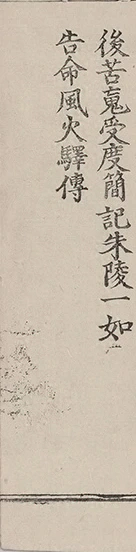 後苦䰟受度簡記朱陵一如
告命風火驛傳